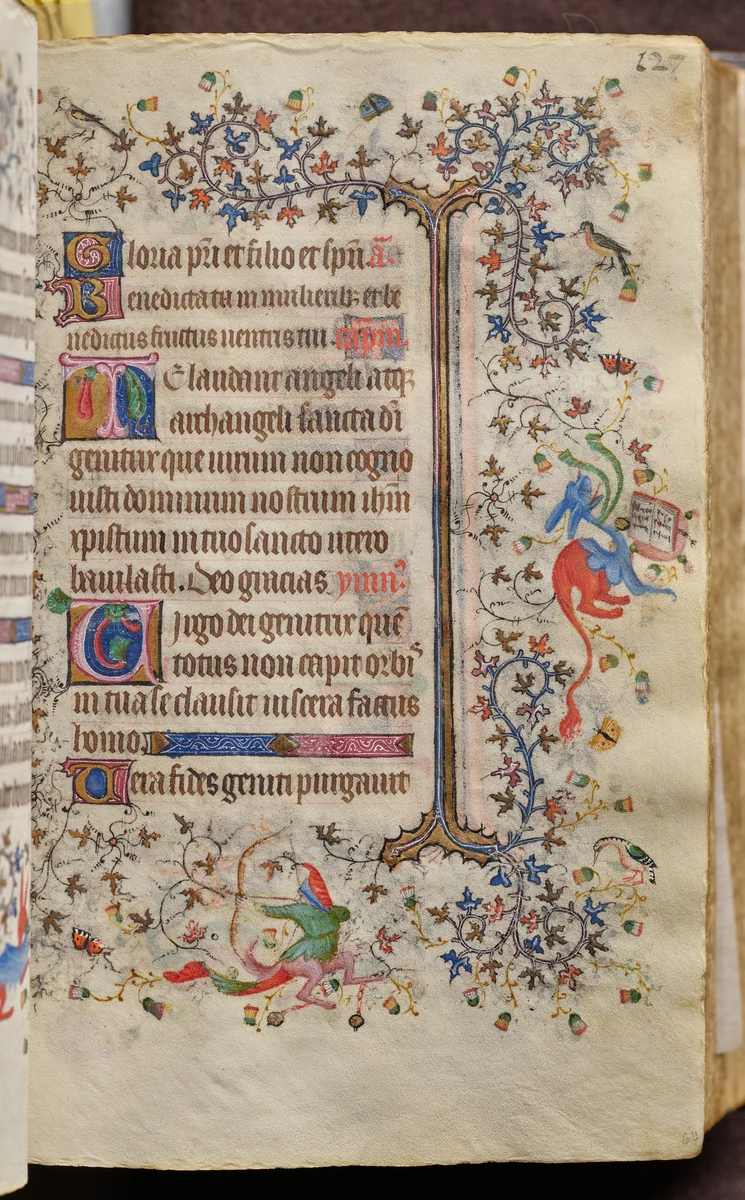 127
Gloria pri et filio et spui. ā.
Benedicta tu in mulieribz et be
nedictus fructus uentris tui. capitm.
TE laudant angeli atqz
archangeli sancta dī
genitrix que uirum non cogno
uisti dominum nostrum ihm̄
xpistum in tuo sancto utero
baiulasti. Deo gracias ymn?
Uirgo dei genitrix quē
totus non capit orbis
in tua se clausit uiscera factus
homo.
Uera fides geniti purgauit
64